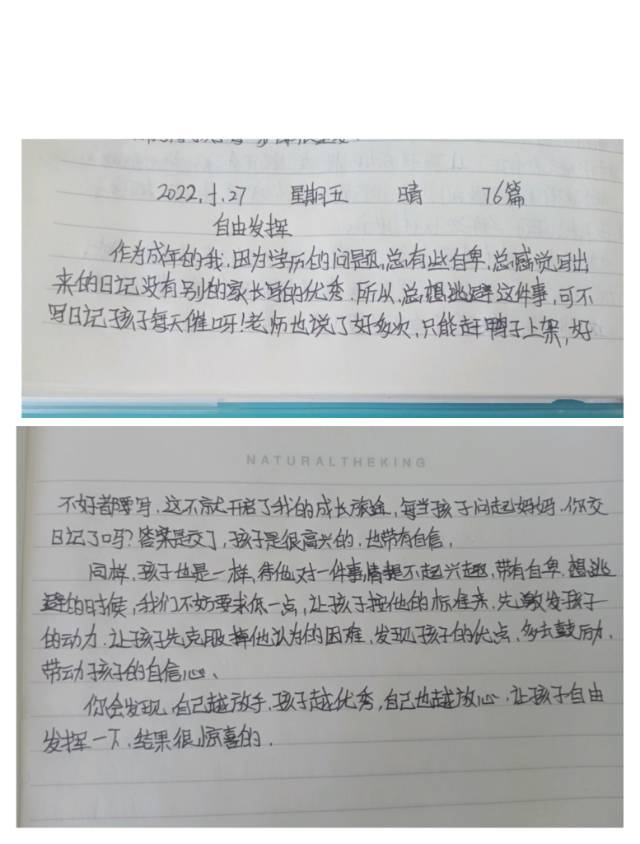 2022.1.27 星期五 晴 76篇
自由发挥
作为成年的我,因为学历的问题,总有些自卑,总感觉写出
来的日记没有别的家长写的优秀,所以,总想逃避这件事,可不
写日记孩子每天催呀!老师也说了好多次,只能赶鸭子上架,好
NATURALTHEKING
不好都要写,这不就开启了我的成长旅途,每当孩子问起妈妈,你交
日记了吗?答案是交了,孩子是很高兴的,也带有自信。
同样,孩子也是一样,待他对一件事情提不起兴趣,带有自卑,想逃
避的时候,我们不妨要求低一点,让孩子按他的标准来,先激发孩子
的动力,让孩子先克服掉他认为的困难,发现孩子的优点,多去鼓励,
带动孩子的自信心。
你会发现,自己越放手,孩子越优秀,自己也越放心,让孩子自由
发挥一下,结果很惊喜的。